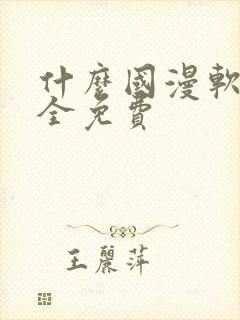 什麼國漫軟
全免費
王麗萍